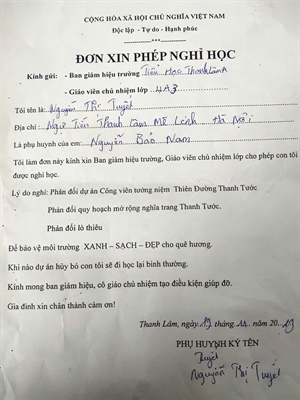 CỘNG HÒA XÃ HỘI CHỦ NGHĨA VIỆT NAM
Độc lập - Tự do - Hạnh phúc
-----------***-----------
ĐƠN XIN PHÉP NGHỈ HỌC
Kính gửi: - Ban giám hiệu trường Tiểu Học Thanh Lâm A
- Giáo viên chủ nhiệm lớp 4A3
Tôi tên là: Nguyễn Thị Tuyết
Địa chỉ: Ngự Tiền Thanh Lâm Mê Linh Hà Nội
Là phụ huynh của em: Nguyễn Bảo Nam
Tôi làm đơn này kính xin Ban giám hiệu, Giáo viên chủ nhiệm lớp cho phép con tôi
được nghỉ học.
Lý do nghỉ: Phản đối dự án Công viên tưởng niệm Thiên Đường Thanh Tước
Phản đối quy hoạch mở rộng nghĩa trang Thanh Tước.
Phản đối lò thiêu
Để bảo vệ môi trường XANH – SẠCH – ĐẸP cho quê hương.
Khi nào dự án hủy bỏ con tôi sẽ đi học lại bình thường.
Kính mong ban giám hiệu, cô giáo chủ nhiệm tạo điều kiện giúp đỡ.
Gia đình xin chân thành cảm ơn!
Thanh Lâm, ngày 19 tháng 11 năm 2019
PHỤ HUYNH KÝ TÊN
Tuyết
Nguyễn Thị Tuyết